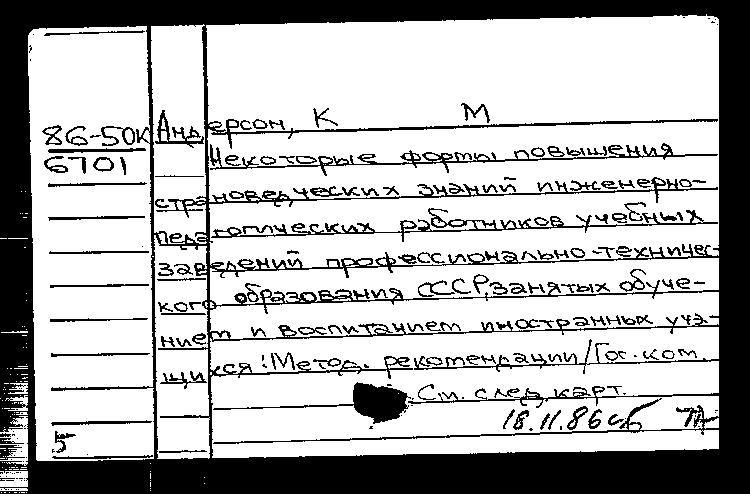 86-50К Андерсон, К М
6701 Некоторые формы повышения
страноведческих знаний инженерно-
педагогических работников учебных
заведений профессионально-техничес-
кого образования СССР, занятых обуче-
нием и воспитанием иностранных уча-
щихся: Метод. рекомендации/Гос. ком.
См. след. карт.
18.11.86 сб
5